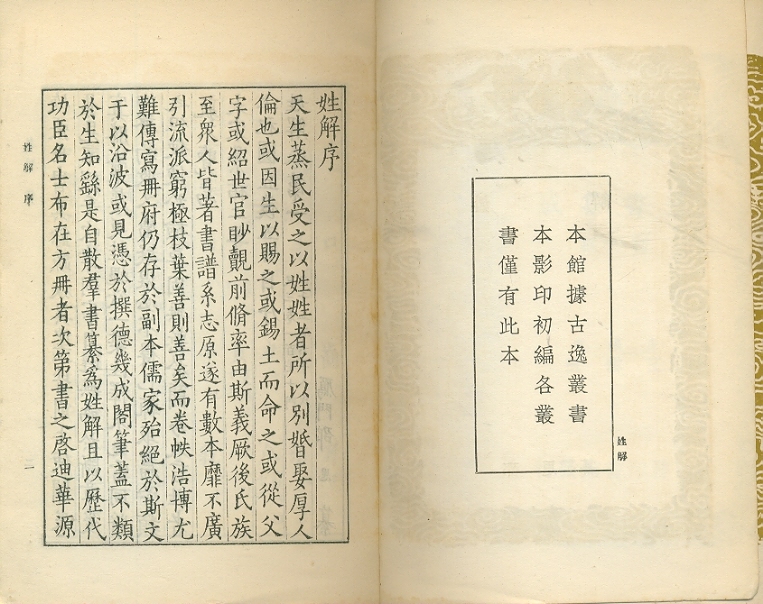 本館據古逸叢書
本影印初編各叢
書僅有此本
姓解
姓解序
天生蒸民受之以姓姓者所以別婚娶厚人
倫也或因生以賜之或錫土而命之或從父
字或紹世官眇覿前脩率由斯義厥後氏族
至衆人皆著書譜系志原遂有數本靡不廣
引流派窮極枝葉善則善矣而卷帙浩博尤
難傳寫冊府仍存於副本儒家殆絕於斯文
于以沿波或見憑於撰德幾成閣筆蓋不類
於生知繇是自散羣書纂爲姓解且以歷代
功臣名士布在方冊者次第書之啓迪華源
姓解 序
一